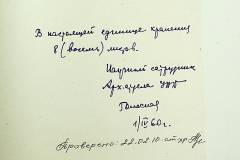 В настоящей единице хранения
8 (восемь) листов.
Научный сотрудник
Арх. отдела
1/IV 60г.
Проверено 22.02.10